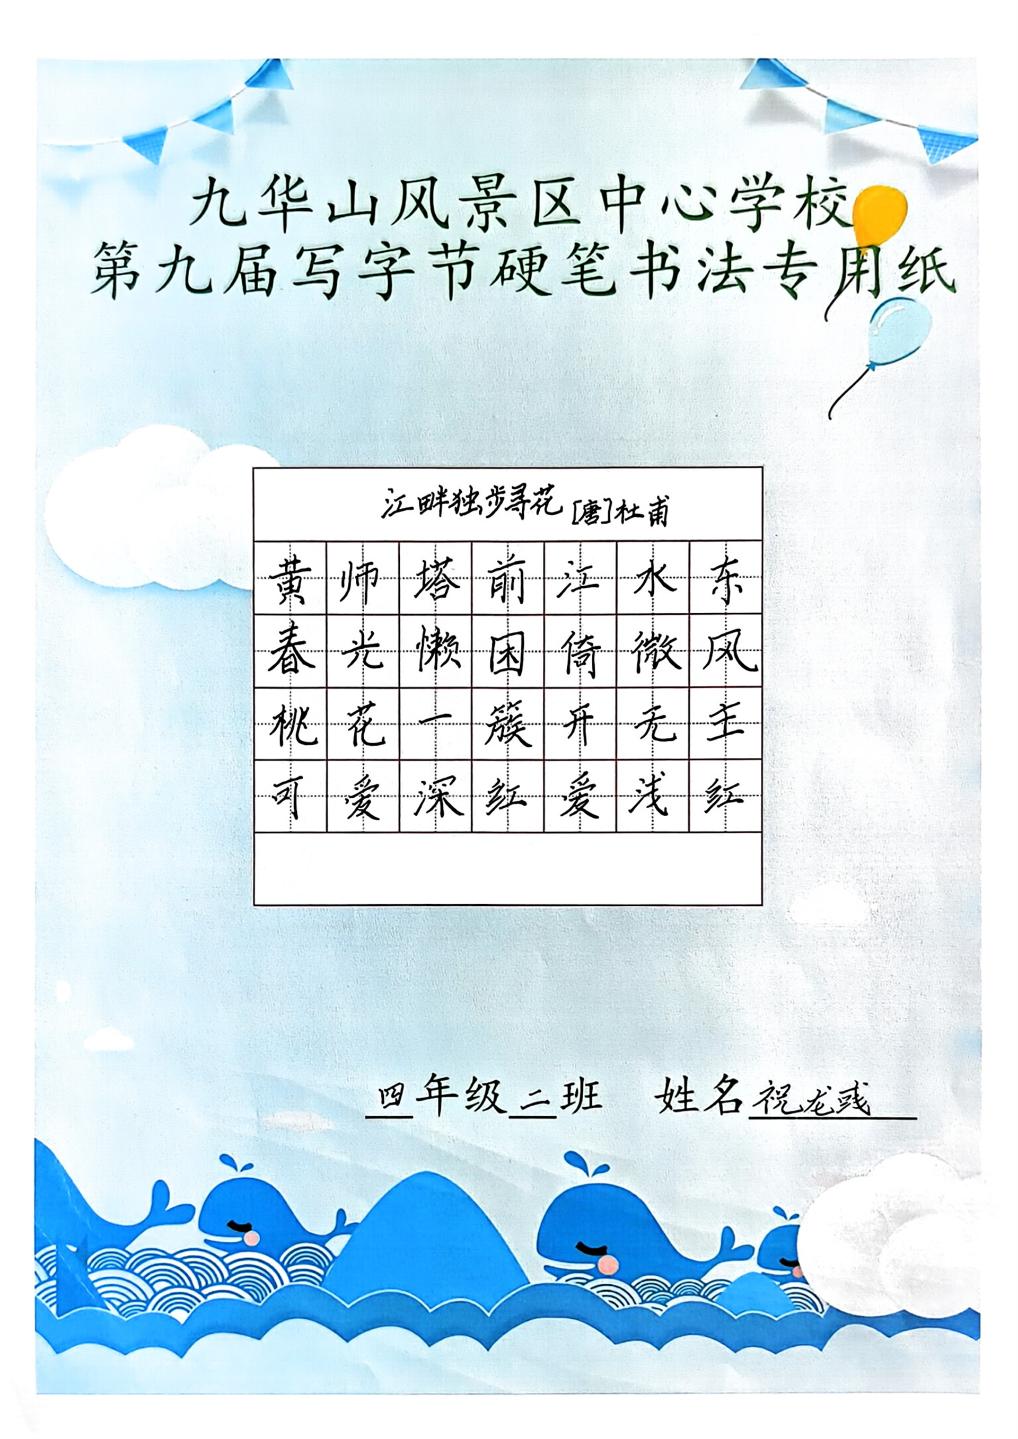 九华山风景区中心学校
第九届写字节硬笔书法专用纸
江畔独步寻花 [唐]杜甫
黄师塔前江水东
春光懒困倚微风
桃花一簇开无主
可爱深红爱浅红
四年级二班 姓名祝龙彧